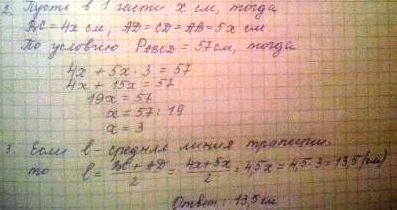 2. Пусть в 1 части x см, тогда
BC = 4x см, AD = CD = AB = 5x см.
По условию P ABCD = 57 см, тогда
4x + 5x · 3 = 57
4x + 15x = 57
19x = 57
x = 57 : 19
x = 3
3. Если l - средняя линия трапеции,
то l = BC + AD / 2 = 4x + 5x / 2 = 4,5x = 4,5 · 3 = 13,5 (см)
Ответ: 13,5 см